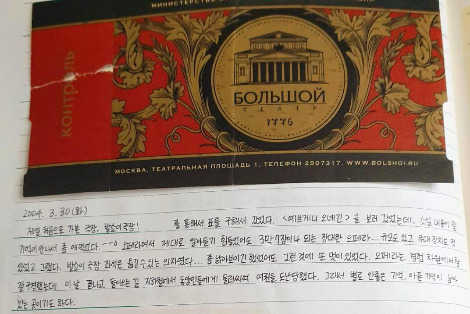 МИНИСТЕРСТВО
контроль
БОЛЬШОЙ
ТЕАТР
1776
МОСКВА, ТЕАТРАЛЬНАЯ ПЛОЩАДЬ 1, ТЕЛЕФОН 2507317. WWW.BOLSHOI.RU
2004. 3. 30 (화)
제일 처음으로 가본 극장, 볼쇼이극장! 를 통해서 표를 구해서 갔었다. <예브게니 오네긴>을 보러 갔었는데, 소설 내용이 잘
기억이 안나서 좀 애먹었다. 오페라여서 제대로 알아듣기 힘들었어도 3막 7장이나 되는 장대한 오페라... 규모도 있고 무대 장치도 멋
있었고 그랬다. 볼쇼이 극장 좌석은 움직일 수 있는 의자였다... 좀 낡아보이긴 했었어도 그런 것에 또 멋이 있었다. 오페라는, 경험 차원에서 잘
관람했는데 이 날 끝나고 돌아오는 길 지하철에서 동양인들에게 둘러싸여 여권을 도난당했다. 그래서 별로 안좋은 기억, 아픈 기억이 남아
있는 곳이기도 하다.